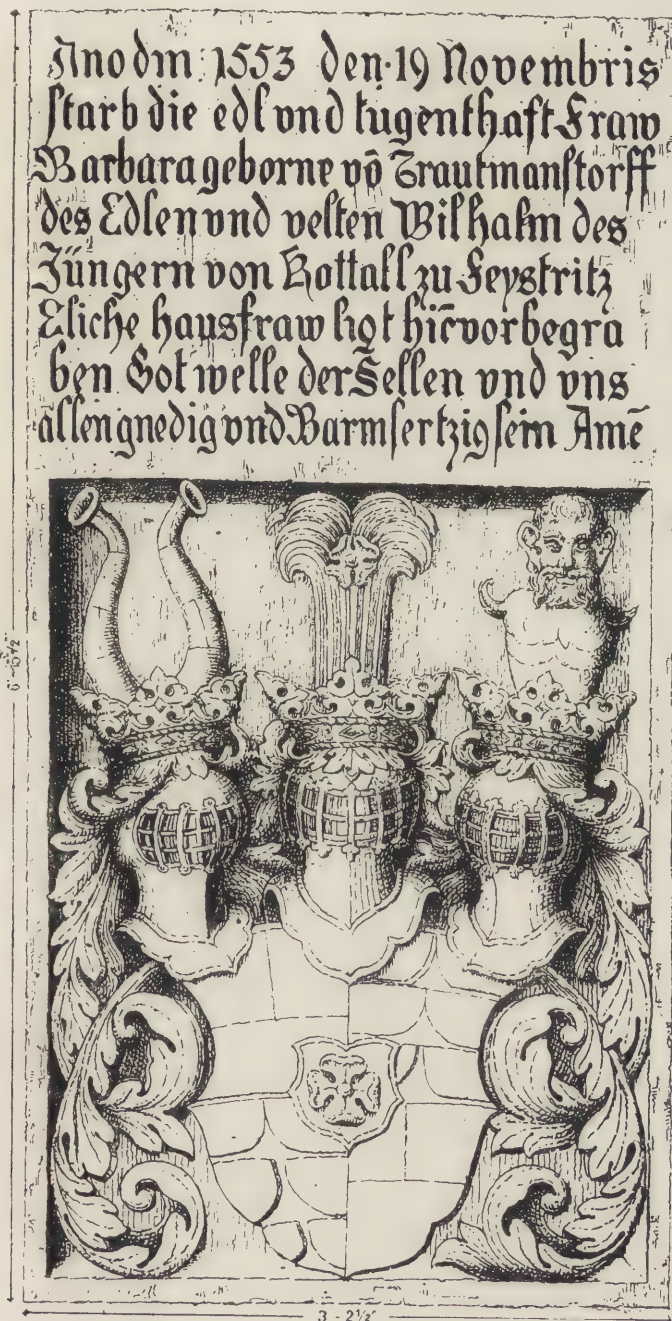 Anno dm: 1553 den·19 Novembris
starb die edl vnd tugenthaft Fraw
Barbara geborne vō Trautmanstorff
des Edlen vnd vesten Wilhalm des
Jüngern von Rottall zu Feystritz
Eliche hausfraw ligt hie vor begra
ben Got welle der Sellen vnd vns
allen gnedig vnd Barmsertzig sein Amē
3 - 2½"